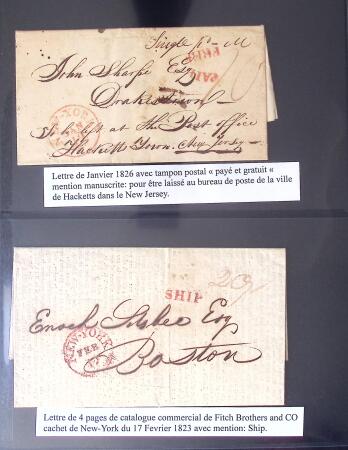 Single
PAID
John Sharpe Esq
Drakestown
To be left at the Post office
Hacketts Town. New Jersey
Lettre de Janvier 1826 avec tampon postal « payé et gratuit «
mention manuscrite: pour être laissé au bureau de poste de la ville
de Hacketts dans le New Jersey.
SHIP
NEW-YORK
FEB
17
Enoch Silsbee Esq
Boston
Lettre de 4 pages de catalogue commercial de Fitch Brothers and CO
cachet de New-York du 17 Fevrier 1823 avec mention: Ship.